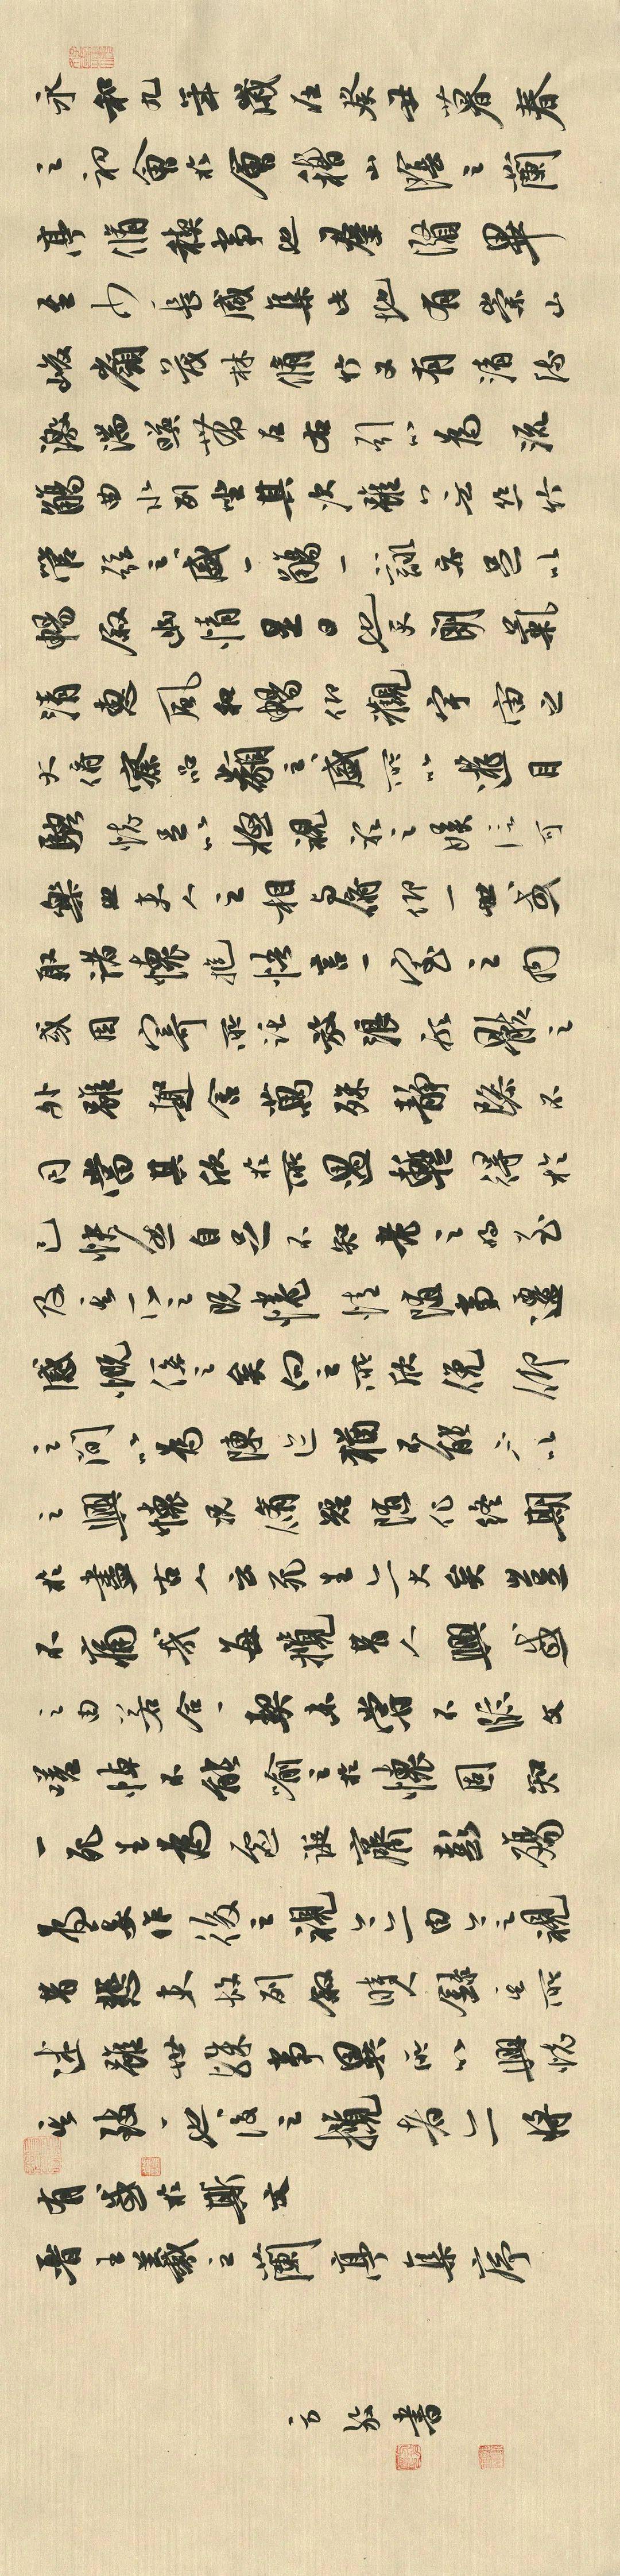 永和九年歲在癸丑暮春
之初會於會稽山陰之蘭
亭脩禊事也羣賢畢
至少長咸集此地有崇山
峻嶺茂林脩竹又有清流
激湍暎帶左右引以為流
觴曲水列坐其次雖無絲竹
管弦之盛一觴一詠亦足以
暢叙幽情是日也天朗氣
清惠風和暢仰觀宇宙之
大俯察品類之盛所以遊目
騁懷足以極視聽之娛信可
樂也夫人之相與俯仰一世或
取諸懷抱悟言一室之內
或因寄所託放浪形骸之
外雖趣舍萬殊靜躁不
同當其欣於所遇暫得於
己快然自足不知老之將至
及其所之既惓情隨事遷
感慨係之矣向之所欣俛仰
之間以為陳迹猶不能不以
之興懷況脩短隨化終期
於盡古人云死生亦大矣豈
不痛哉每攬昔人興感
之由若合一契未嘗不臨文
嗟悼不能喻之於懷固知
一死生為虛誕齊彭殤
為妄作後之視今亦由今之視
昔悲夫故列叙時人錄其所
述雖世殊事異所以興懷
其致一也後之攬者亦將
有感於斯文
晉王羲之蘭亭集序
方敬書